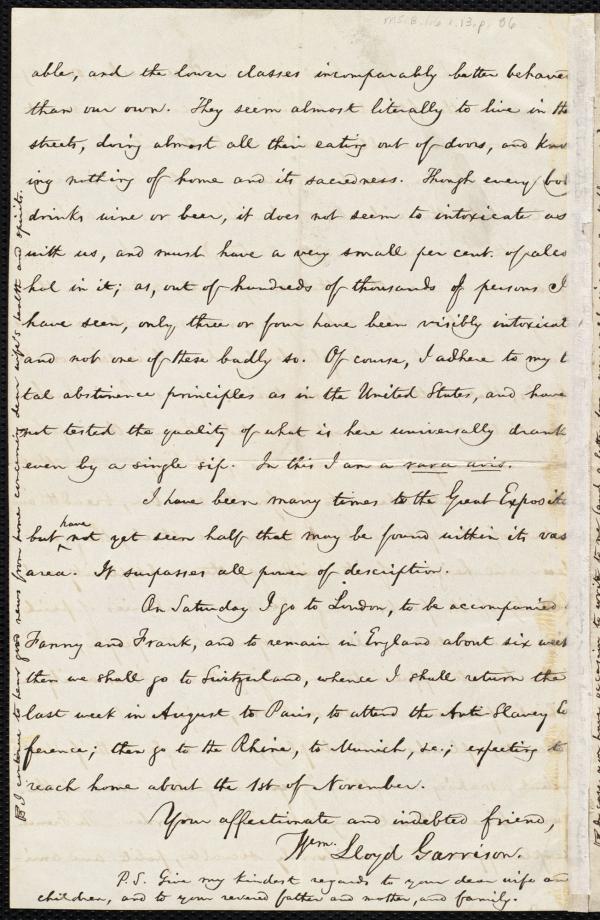 able, and the lower classes incomparably better behave
than our own. They seem almost literally to live in the
streets, doing almost all their eating out of doors, and know
ing nothing of home and its sacredness. Though every bod
drinks wine or beer, it does not seem to intoxicate as
with us, and must have a very small per cent. of alco
hol in it; as, out of hundreds of thousands of persons I
have seen, only three or four have been visibly intoxicat
and not one of these badly so. Of course, I adhere to my t
tal abstinence principles as in the United States, and have
not tested the quality of what is here universally drank
even by a single sip. In this I am a rara avis.
I have been many times to the Great Exposit
but have not yet seen half that may be found within its vas
area. It surpasses all power of description.
On Saturday I go to London, to be accompanied
Fanny and Frank, and to remain in England about six week
then we shall go to Switzerland, whence I shall return the
last week in August to Paris, to attend the Anti-Slavery Co
ference; then go to the Rhine, to Munich, &c.; expecting to
reach home about the 1st of November.
Your affectionate and indebted friend,
Wm. Lloyd Garrison.
P.S. Give my kindest regards to your dear wife an
children, and to your revered father and mother, and family.
I continue to hear good news from home concerning dear wife's health and spirits.